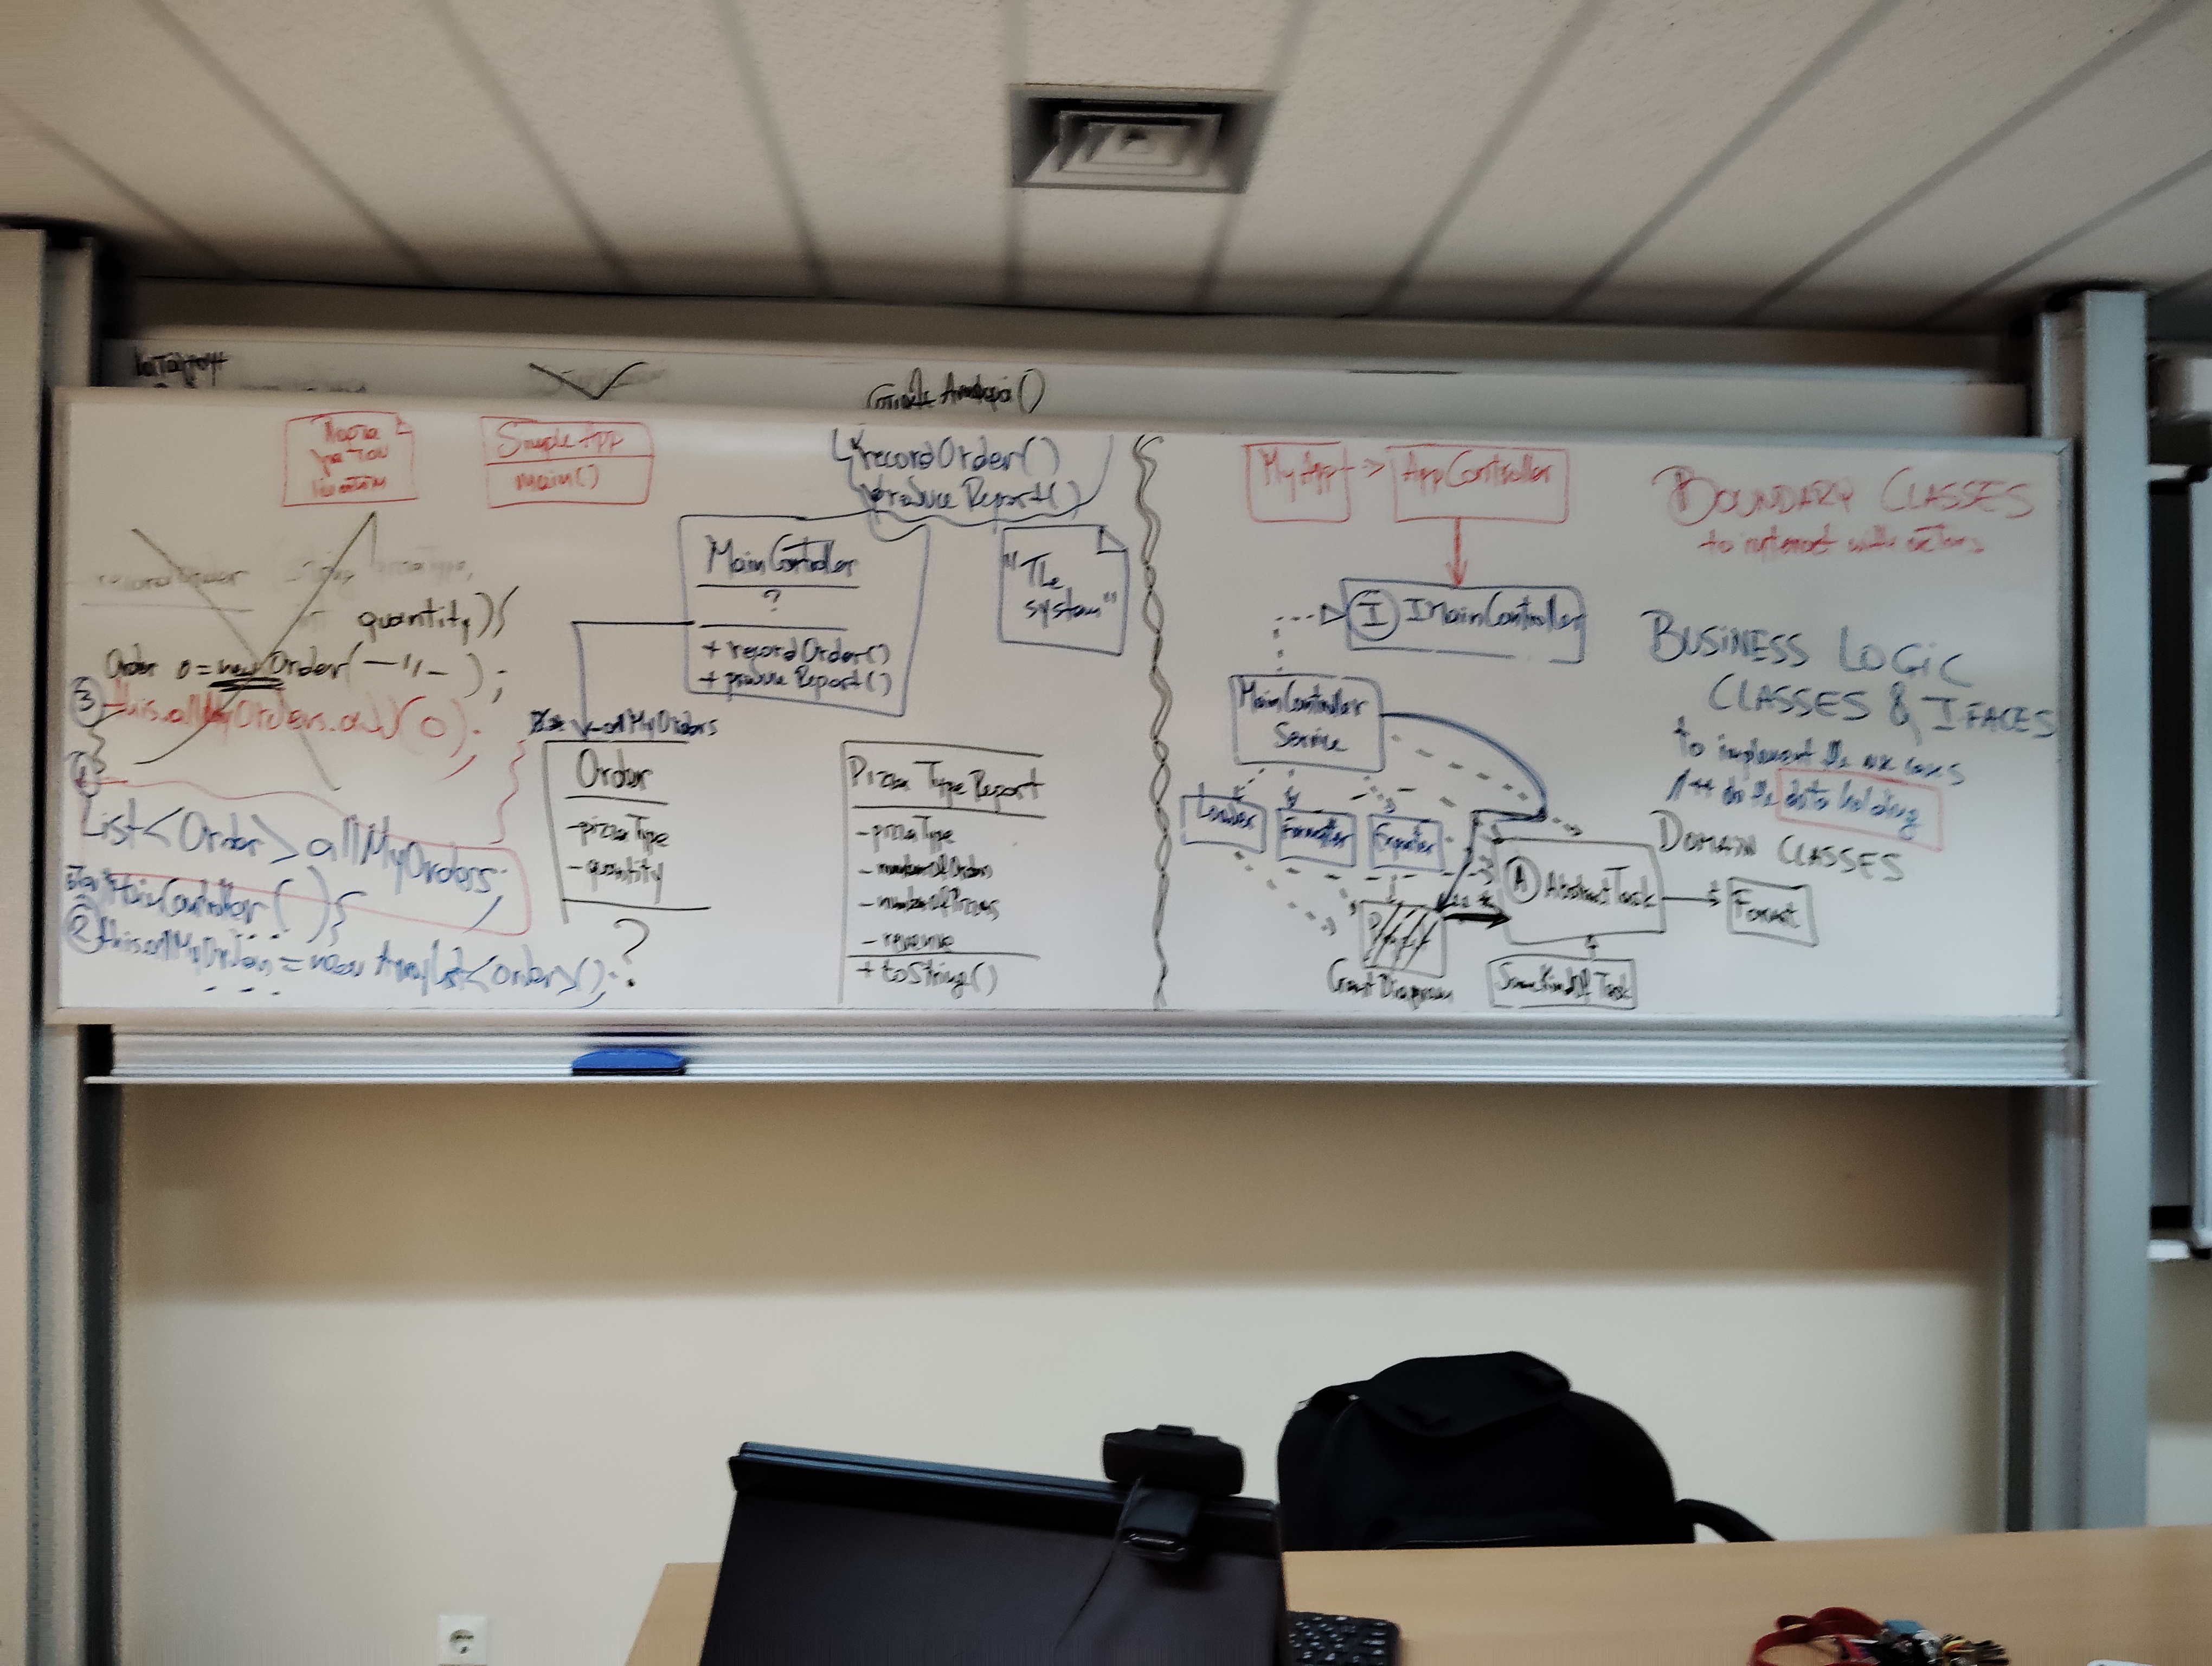 SimpleApp
main()
recordOrder()
produceReport()
MainController
?
+ recordOrder()
+ produceReport()
"The
system"
recordOrder
quantity){
Order o = new Order(—"—);
③ this.allMyOrders.add(o);
①
List<Order> allMyOrders;
②this.allMyOrders = new ArrayList<Order>();
- allMyOrders
Order
-pizzaType
-quantity
?
PizzaTypeReport
-pizzaType
-numberOfOrders
-numberOfPizzas
- revenue
+ toString()
MyApp
AppController
I IMainController
MainController
Service
Loader
Formatter
Exporter
A AbstractTask
Format
GantDiagram
SomeKindOfTask
BOUNDARY CLASSES
to interact with actors
BUSINESS LOGIC
CLASSES & IFACES
to implement the use cases
do the data holding
DOMAIN CLASSES